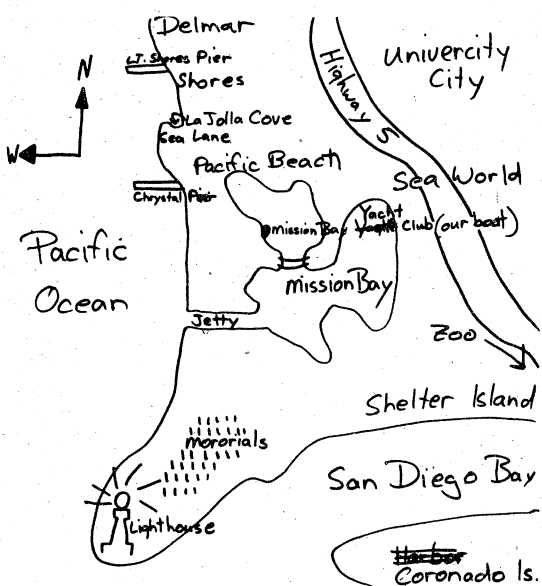 Delmar
L.J. Shores Pier
Shores
N
Univercity
City
Highway 5
La Jolla Cove
Sea Lane
W
Pacific Beach
Chrystal Pier
Sea World
Yacht
Mission Bay Yacht Club (our boat)
Pacific
Ocean
Mission Bay
Jetty
Zoo
Shelter Island
mororials
San Diego Bay
Lighthouse
Harbor
Coronado Is.